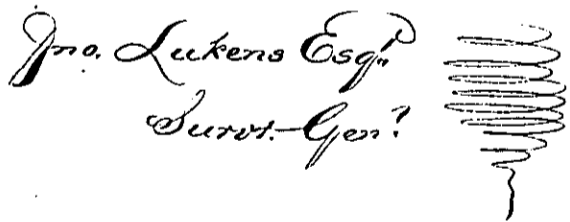 Jno. Lukens Esqr.
Survr.-Genl.